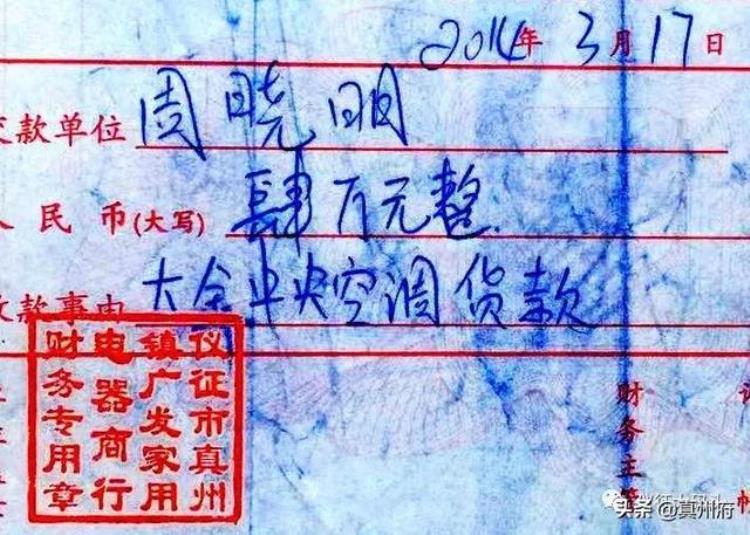 2014年3月17日
交款单位 周晓明
人民币(大写) 肆万元整
收款事由 大金中央空调货款
仪征市真州
镇广发家用
电器商行
财务专用章
财务主管
头条@真州府